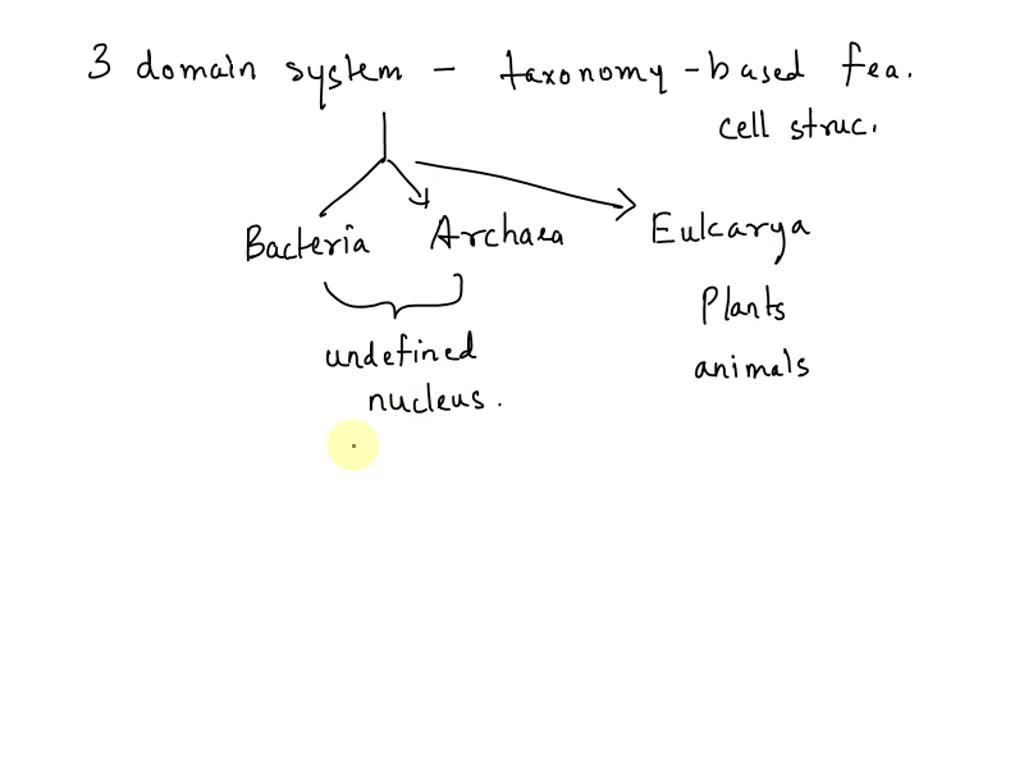 3 domain system - taxonomy-based fea.
cell struc.
Bacteria Archaea Eukarya
Plants
undefined animals
nucleus.